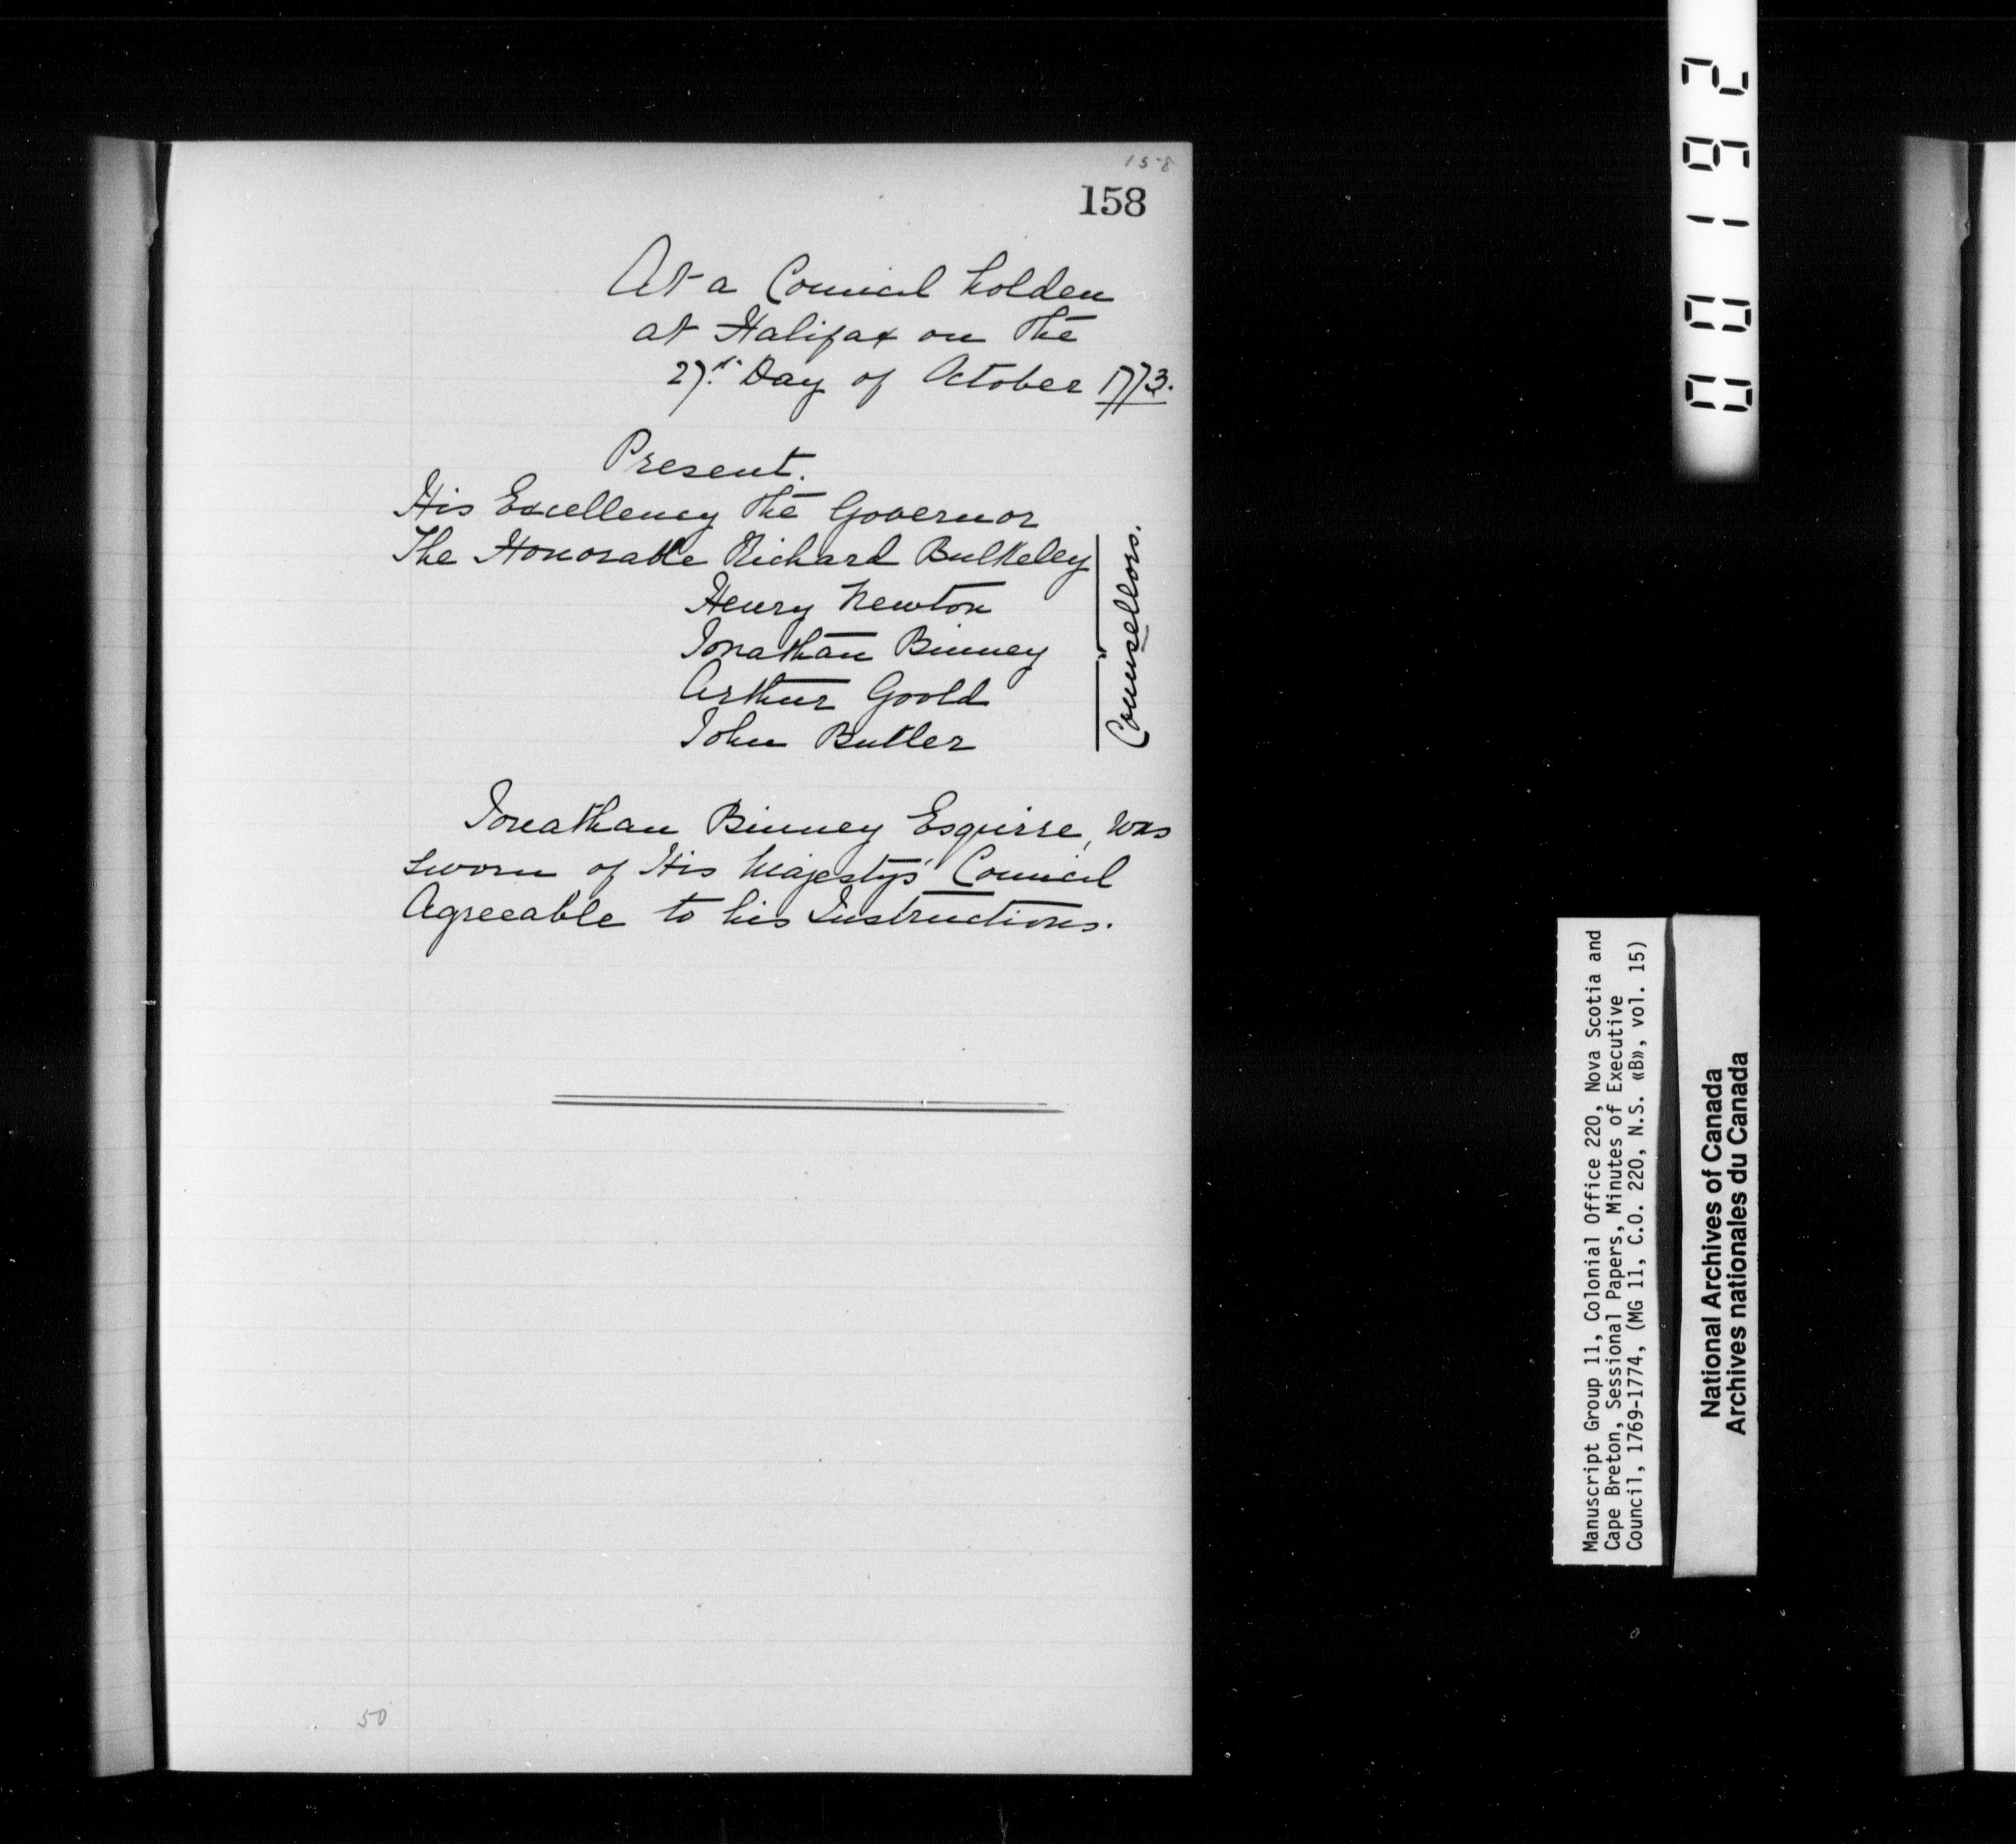 158
158
At a Council holden
at Halifax on the
27th Day of October 1773.
Present.
His Excellency the Governor
The Honorable Richard Bulkeley
Henry Newton
Jonathan Binney
Arthur Goold
John Butler
Counsellors.
Jonathan Binney Esquire, was
sworn of His Majesty's Council
Agreeable to his Instructions.
50
00162
Manuscript Group 11, Colonial Office 220, Nova Scotia and
Cape Breton, Sessional Papers, Minutes of Executive
Council, 1769-1774, (MG 11, C.O. 220, N.S. «B», vol. 15)
National Archives of Canada
Archives nationales du Canada